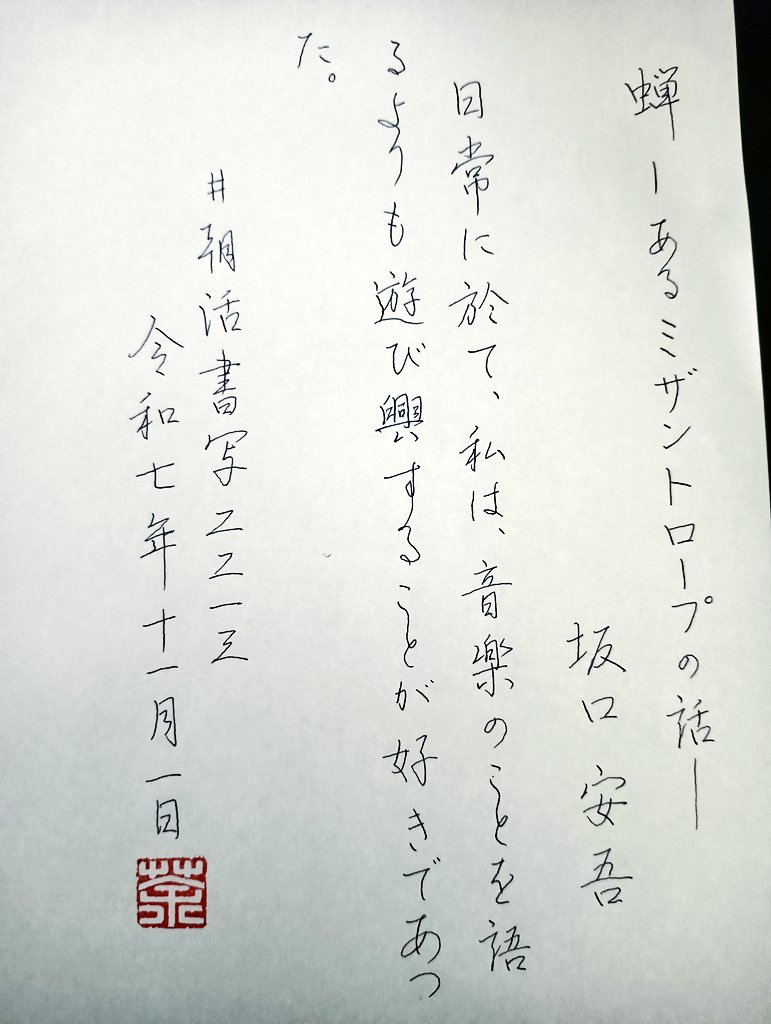 蝉―あるミザントロープの話―
坂口安吾
日常に於て、私は、音楽のことを語
るよりも遊び興することが好きであつ
た。
#朝活書写二二一三
令和七年十一月一日